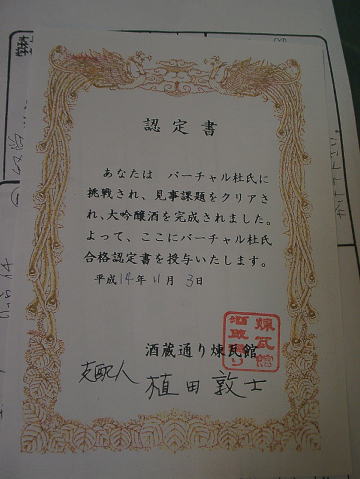 認定書
あなたは　バーチャル杜氏に
挑戦され、見事課題をクリアさ
れ、大吟醸酒を完成されました。
よって、ここにバーチャル杜氏
合格認定書を授与いたします。
平成14年11月3日
酒蔵通り煉瓦館
煉瓦館
酒蔵通り
支配人 植田敦士